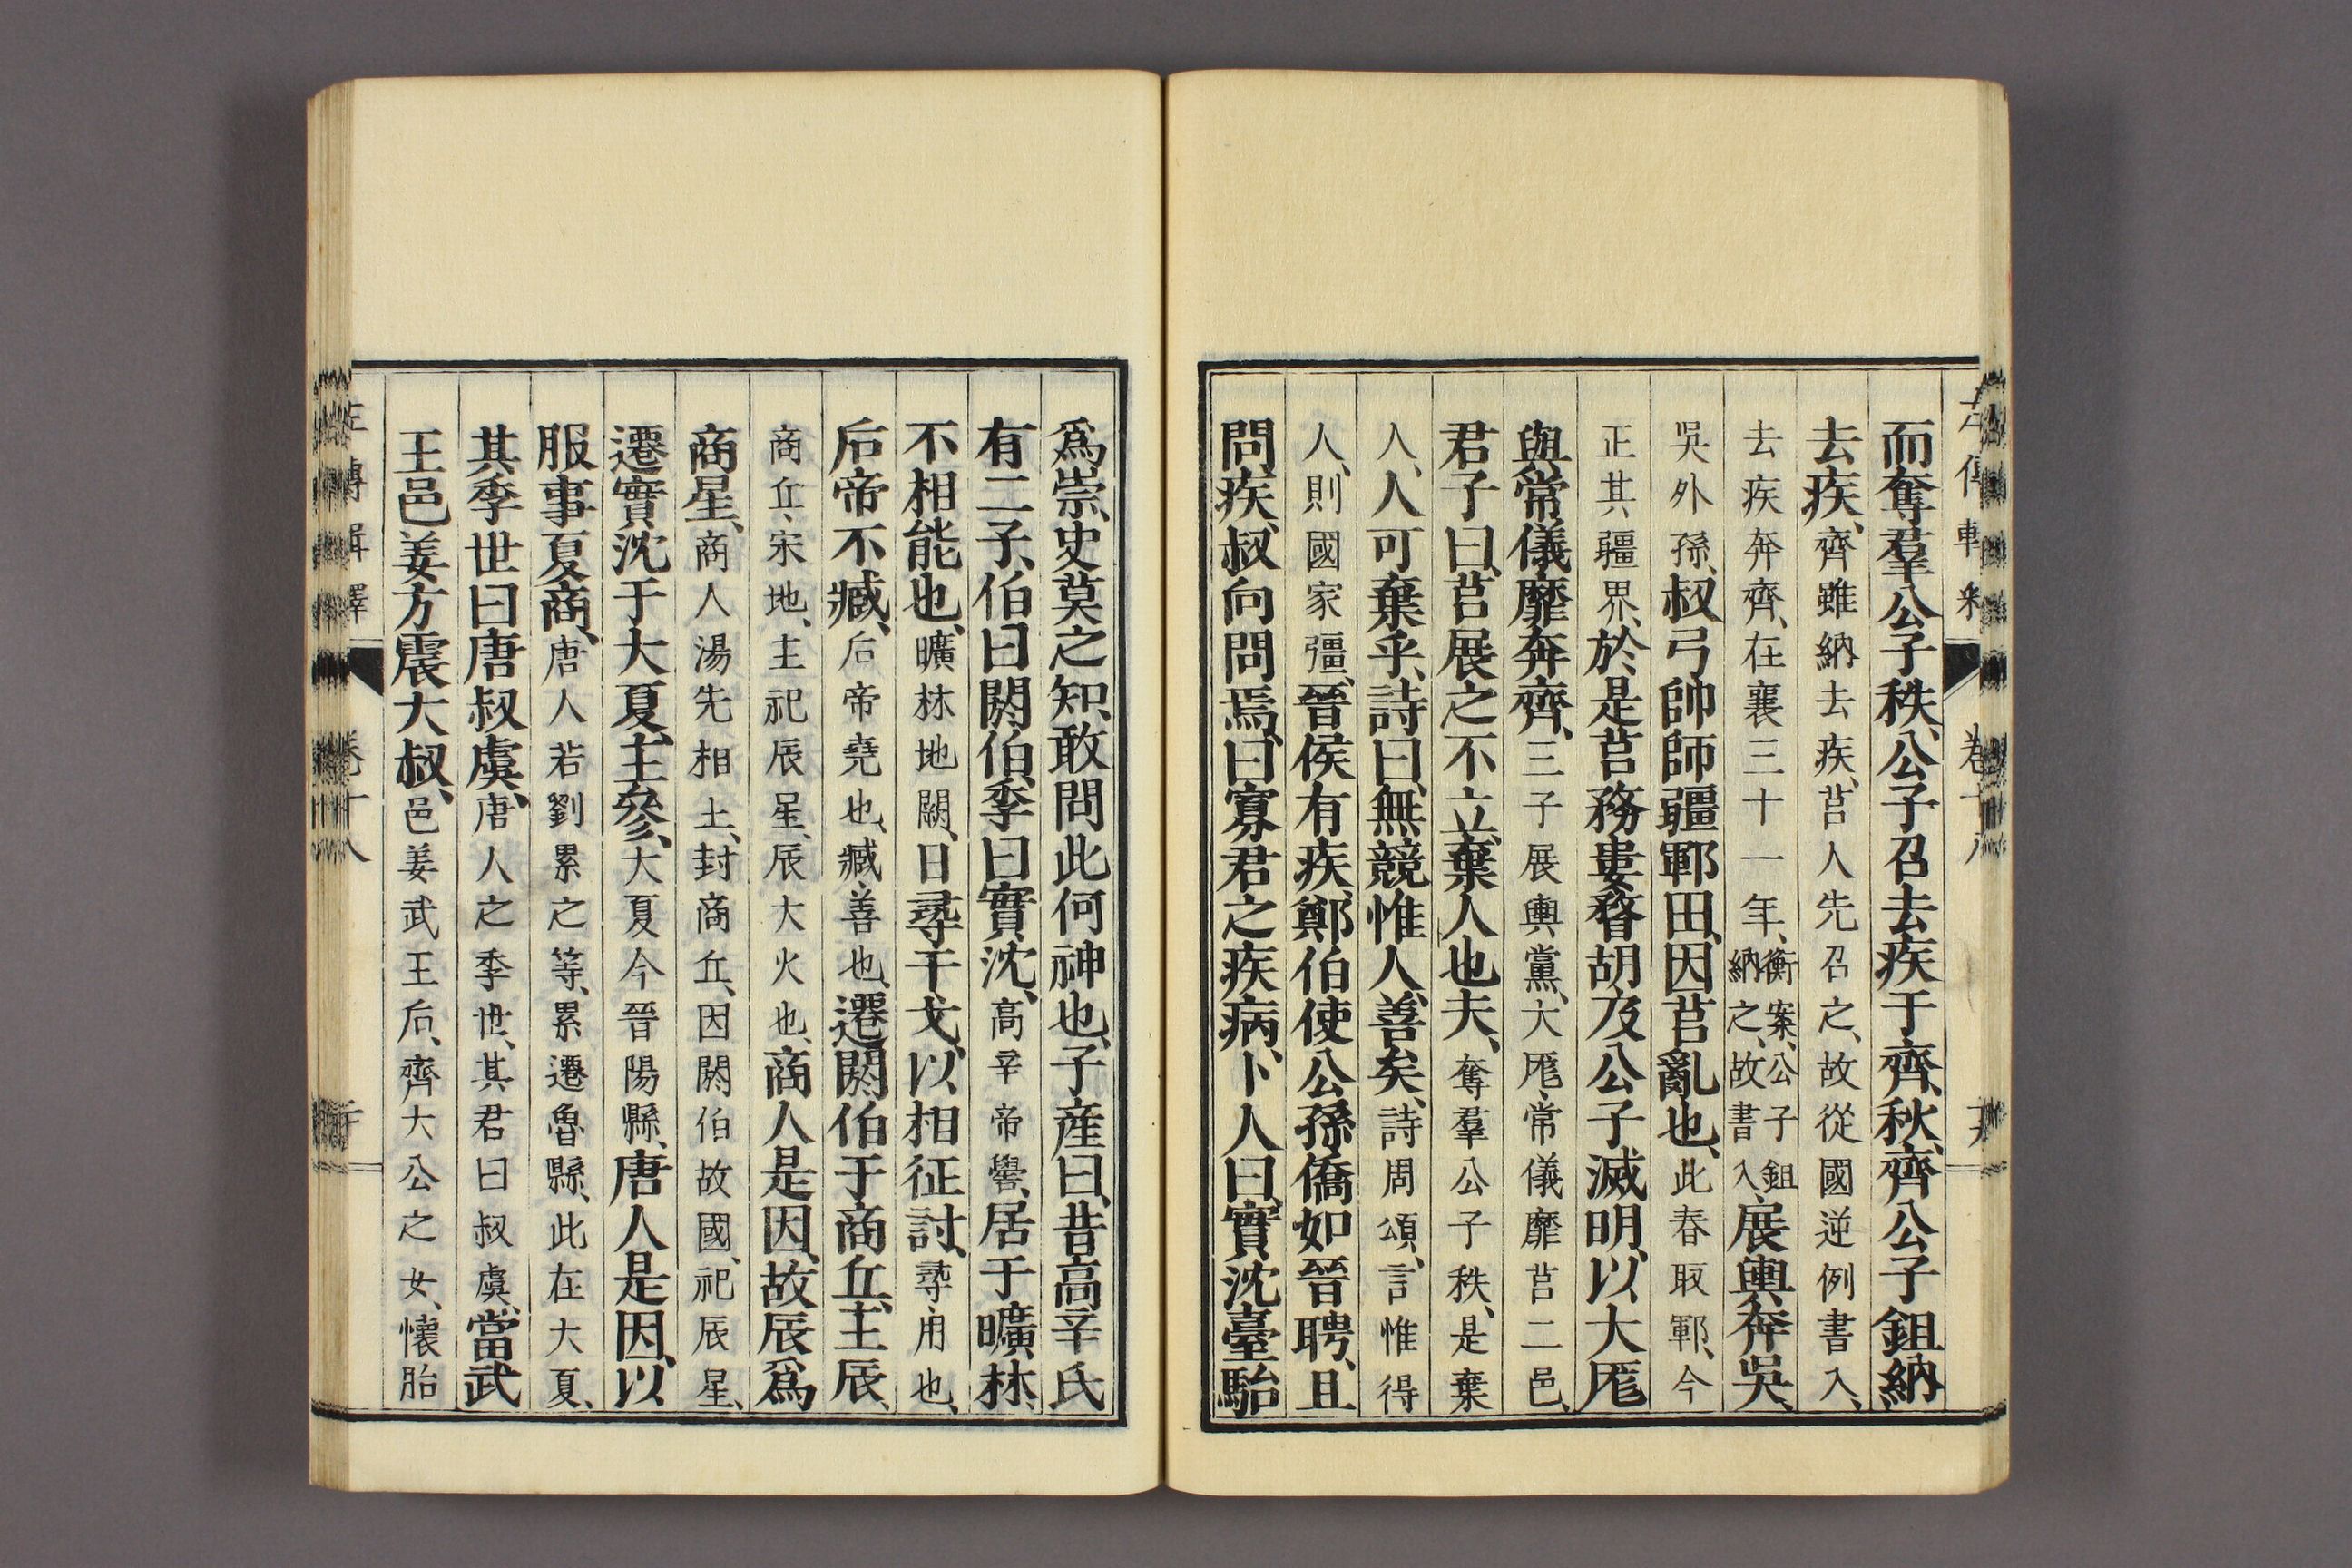 而奪羣公子秩、公子召去疾于齊、秋、齊公子鉏納
去疾、齊雖納去疾、莒人先召之、故從國逆例書入、
去疾奔齊、在襄三十一年、衡案、公子鉏納之、故書入、展輿奔吳、
吳外孫、叔弓帥師疆鄆田、因莒亂也、此春取鄆、今
正其疆界、於是莒務婁瞀胡及公子滅明、以大厖
與常儀靡奔齊、三子展輿黨、大厖、常儀靡莒二邑、
君子曰、莒展之不立、棄人也夫、奪羣公子秩、是棄
人、人可棄乎、詩曰、無競惟人、善矣、詩周頌、言惟得
人、則國家彊、晉侯有疾、鄭伯使公孫僑如晉聘、且
問疾、叔向問焉、曰、寡君之疾病、卜人曰、實沈臺駘
爲祟、史莫之知、敢問此何神也、子產曰、昔高辛氏
有二子、伯曰閼伯、季曰實沈、高辛帝嚳、居于曠林、
不相能也、曠林地闕、日尋干戈、以相征討、尋、用也、
后帝不臧、后帝堯也、臧、善也、遷閼伯于商丘、主辰、
商丘、宋地、主祀辰星、辰大火也、商人是因、故辰爲
商星、商人湯先相土、封商丘、因閼伯故國、祀辰星、
遷實沈于大夏、主參、大夏今晉陽縣、唐人是因、以
服事夏商、唐人若劉累之等、累遷魯縣、此在大夏、
其季世曰唐叔虞、唐人之季世、其君曰叔虞、當武
王邑姜方震大叔、邑姜武王后、齊大公之女、懷胎
左傳輯釋 卷十八